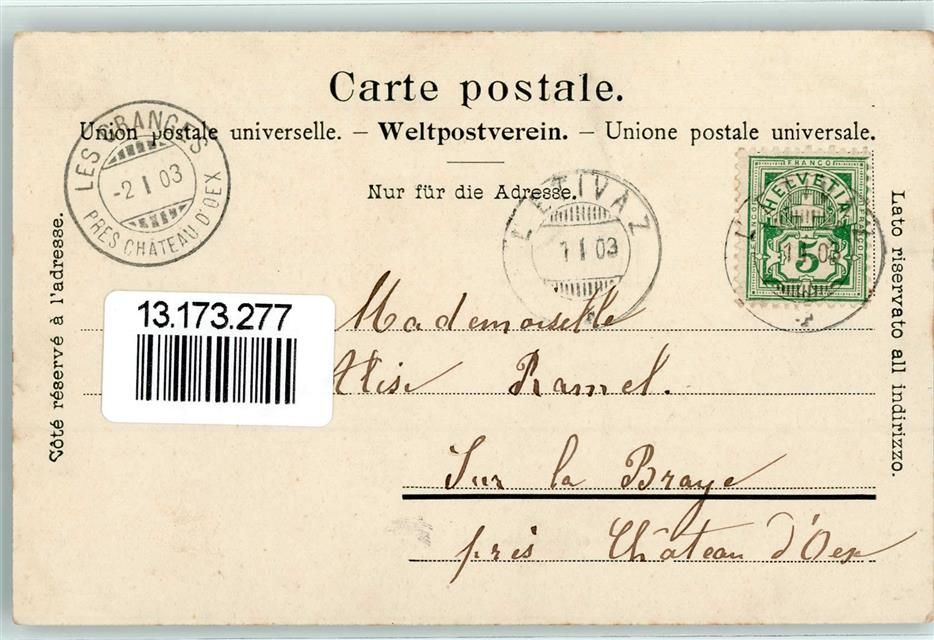 Carte postale.
Union postale universelle. – Weltpostverein. – Unione postale universale.
Nur für die Adresse.
LES GRANGES
-2 I 03
PRÈS CHÂTEAU D'OEX
L'ETIVAZ
1 I 03
FRANCO
HELVETIA
5
1 I 03
Côté réservé à l'adresse.
Lato riservato all indirizzo.
13.173.277
Mademoiselle
Alise Ramel.
Sur la Braye
près Château d'Oex